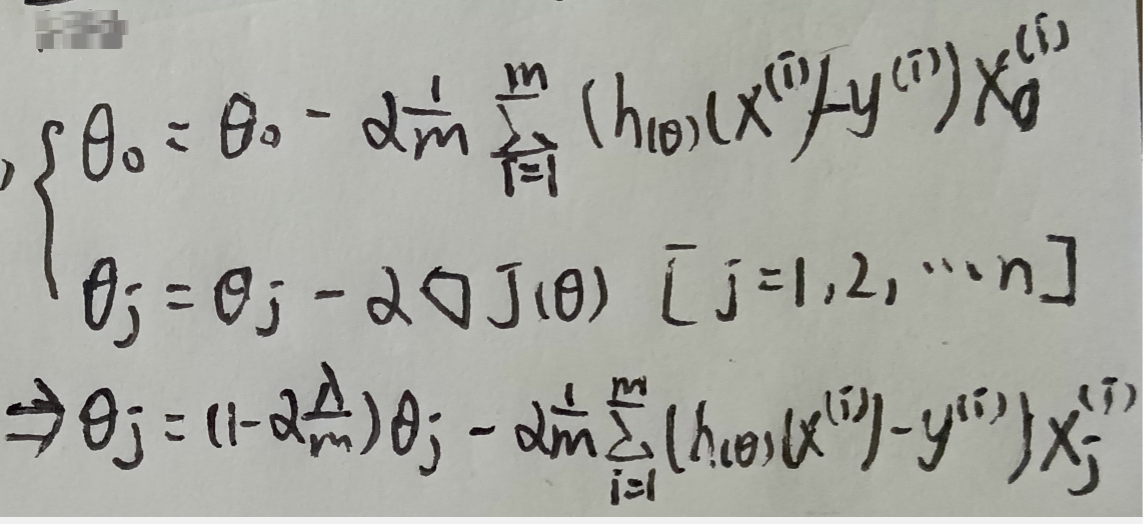 , { θ₀ = θ₀ - α 1/m ∑_{i=1}^{m} (h_{(θ)}(x^{(i)}) - y^{(i)}) x_0^{(i)}
θ_j = θ_j - α ∇ J(θ) [j=1,2,…n]
⇒ θ_j = (1-α λ/m)θ_j - α 1/m ∑_{i=1}^{m} (h_{(θ)}(x^{(i)}) - y^{(i)}) x_j^{(i)}